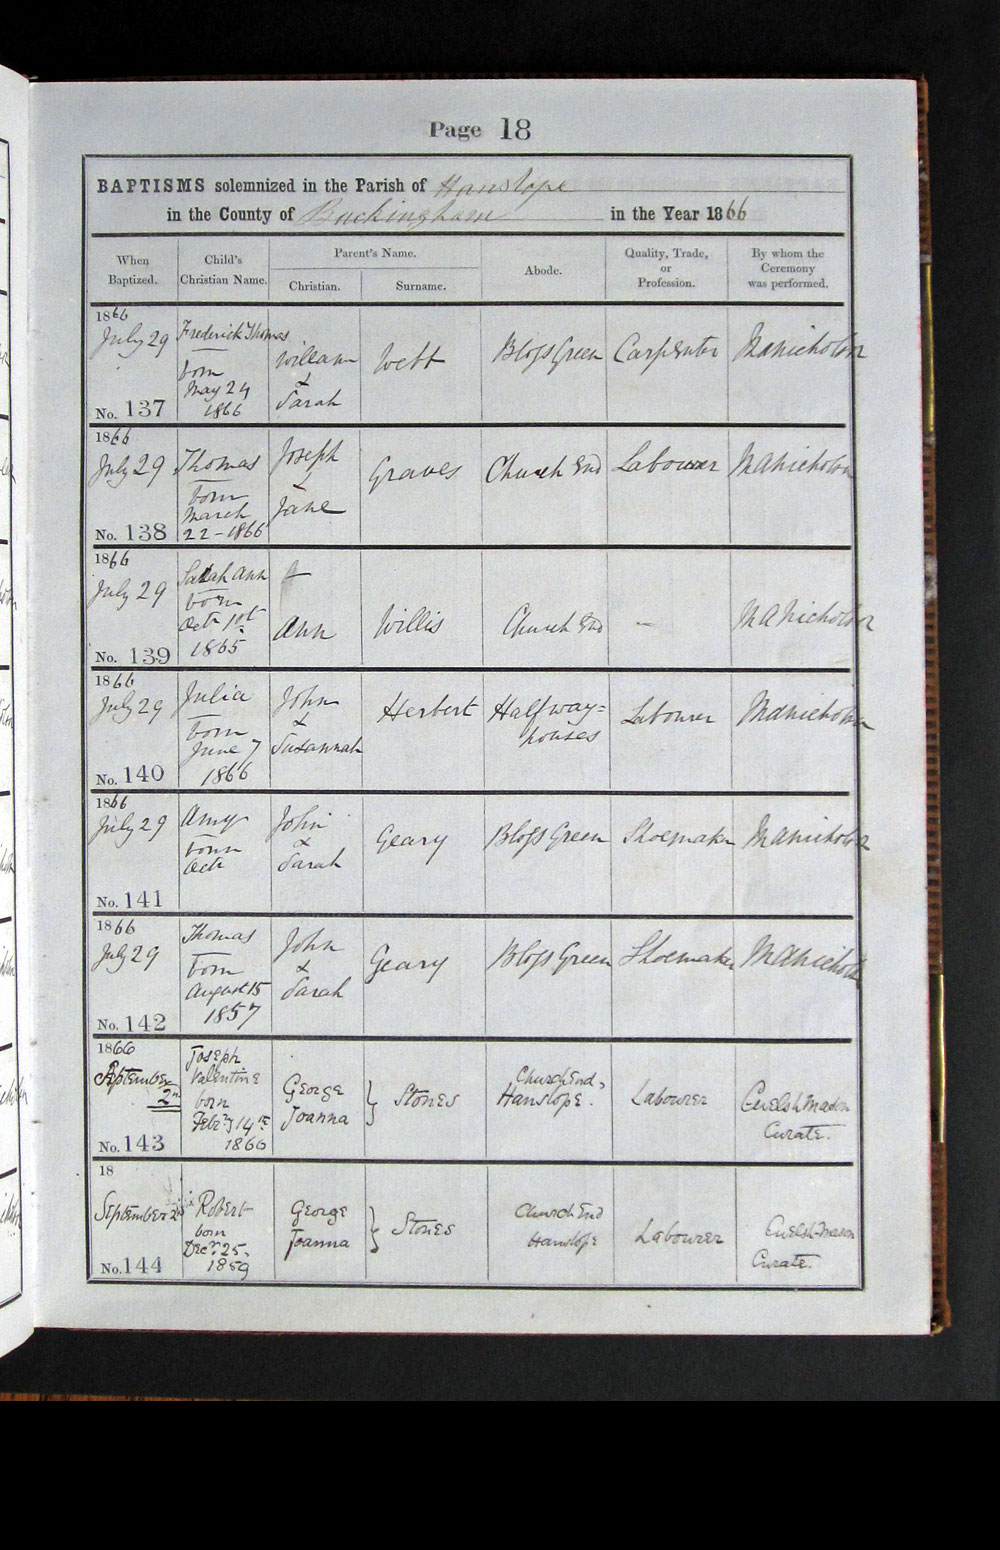 Page 18
BAPTISMS solemnized in the Parish of Hanslope
in the County of Buckingham in the Year 1866
When Baptized.
Child's Christian Name.
Parent's Name.
Christian.
Surname.
Abode.
Quality, Trade, or Profession.
By whom the Ceremony was performed.
1866
July 29
No. 137
Frederick Thomas
born
May 24
1866
William
&
Sarah
Webb
Bloss Green
Carpenter
M A Nicholson
1866
July 29
No. 138
Thomas
born
March
22 - 1866
Joseph
&
Jane
Graves
Church End
Labourer
M A Nicholson
1866
July 29
No. 139
Sarah Ann
born
Oct 1st
1865
Ann
Willis
Church End
—
M A Nicholson
1866
July 29
No. 140
Julia
born
June 7
1866
John
&
Susannah
Herbert
Halfway=
houses
Labourer
M A Nicholson
1866
July 29
No. 141
Amy
born
Oct
John
&
Sarah
Geary
Bloss Green
Shoemaker
M A Nicholson
1866
July 29
No. 142
Thomas
born
August 15
1857
John
&
Sarah
Geary
Bloss Green
Shoemaker
M A Nicholson
1866
September
2nd
No. 143
Joseph
Valentine
born
Febry 14th
1866
George
Joanna
Stones
Church End,
Hanslope.
Labourer
Welsh Mason
Curate.
18
September 2nd
No. 144
Robert
born
Decr. 25.
1859
George
Joanna
Stones
Church End
Hanslope
Labourer
Welsh Mason
Curate.